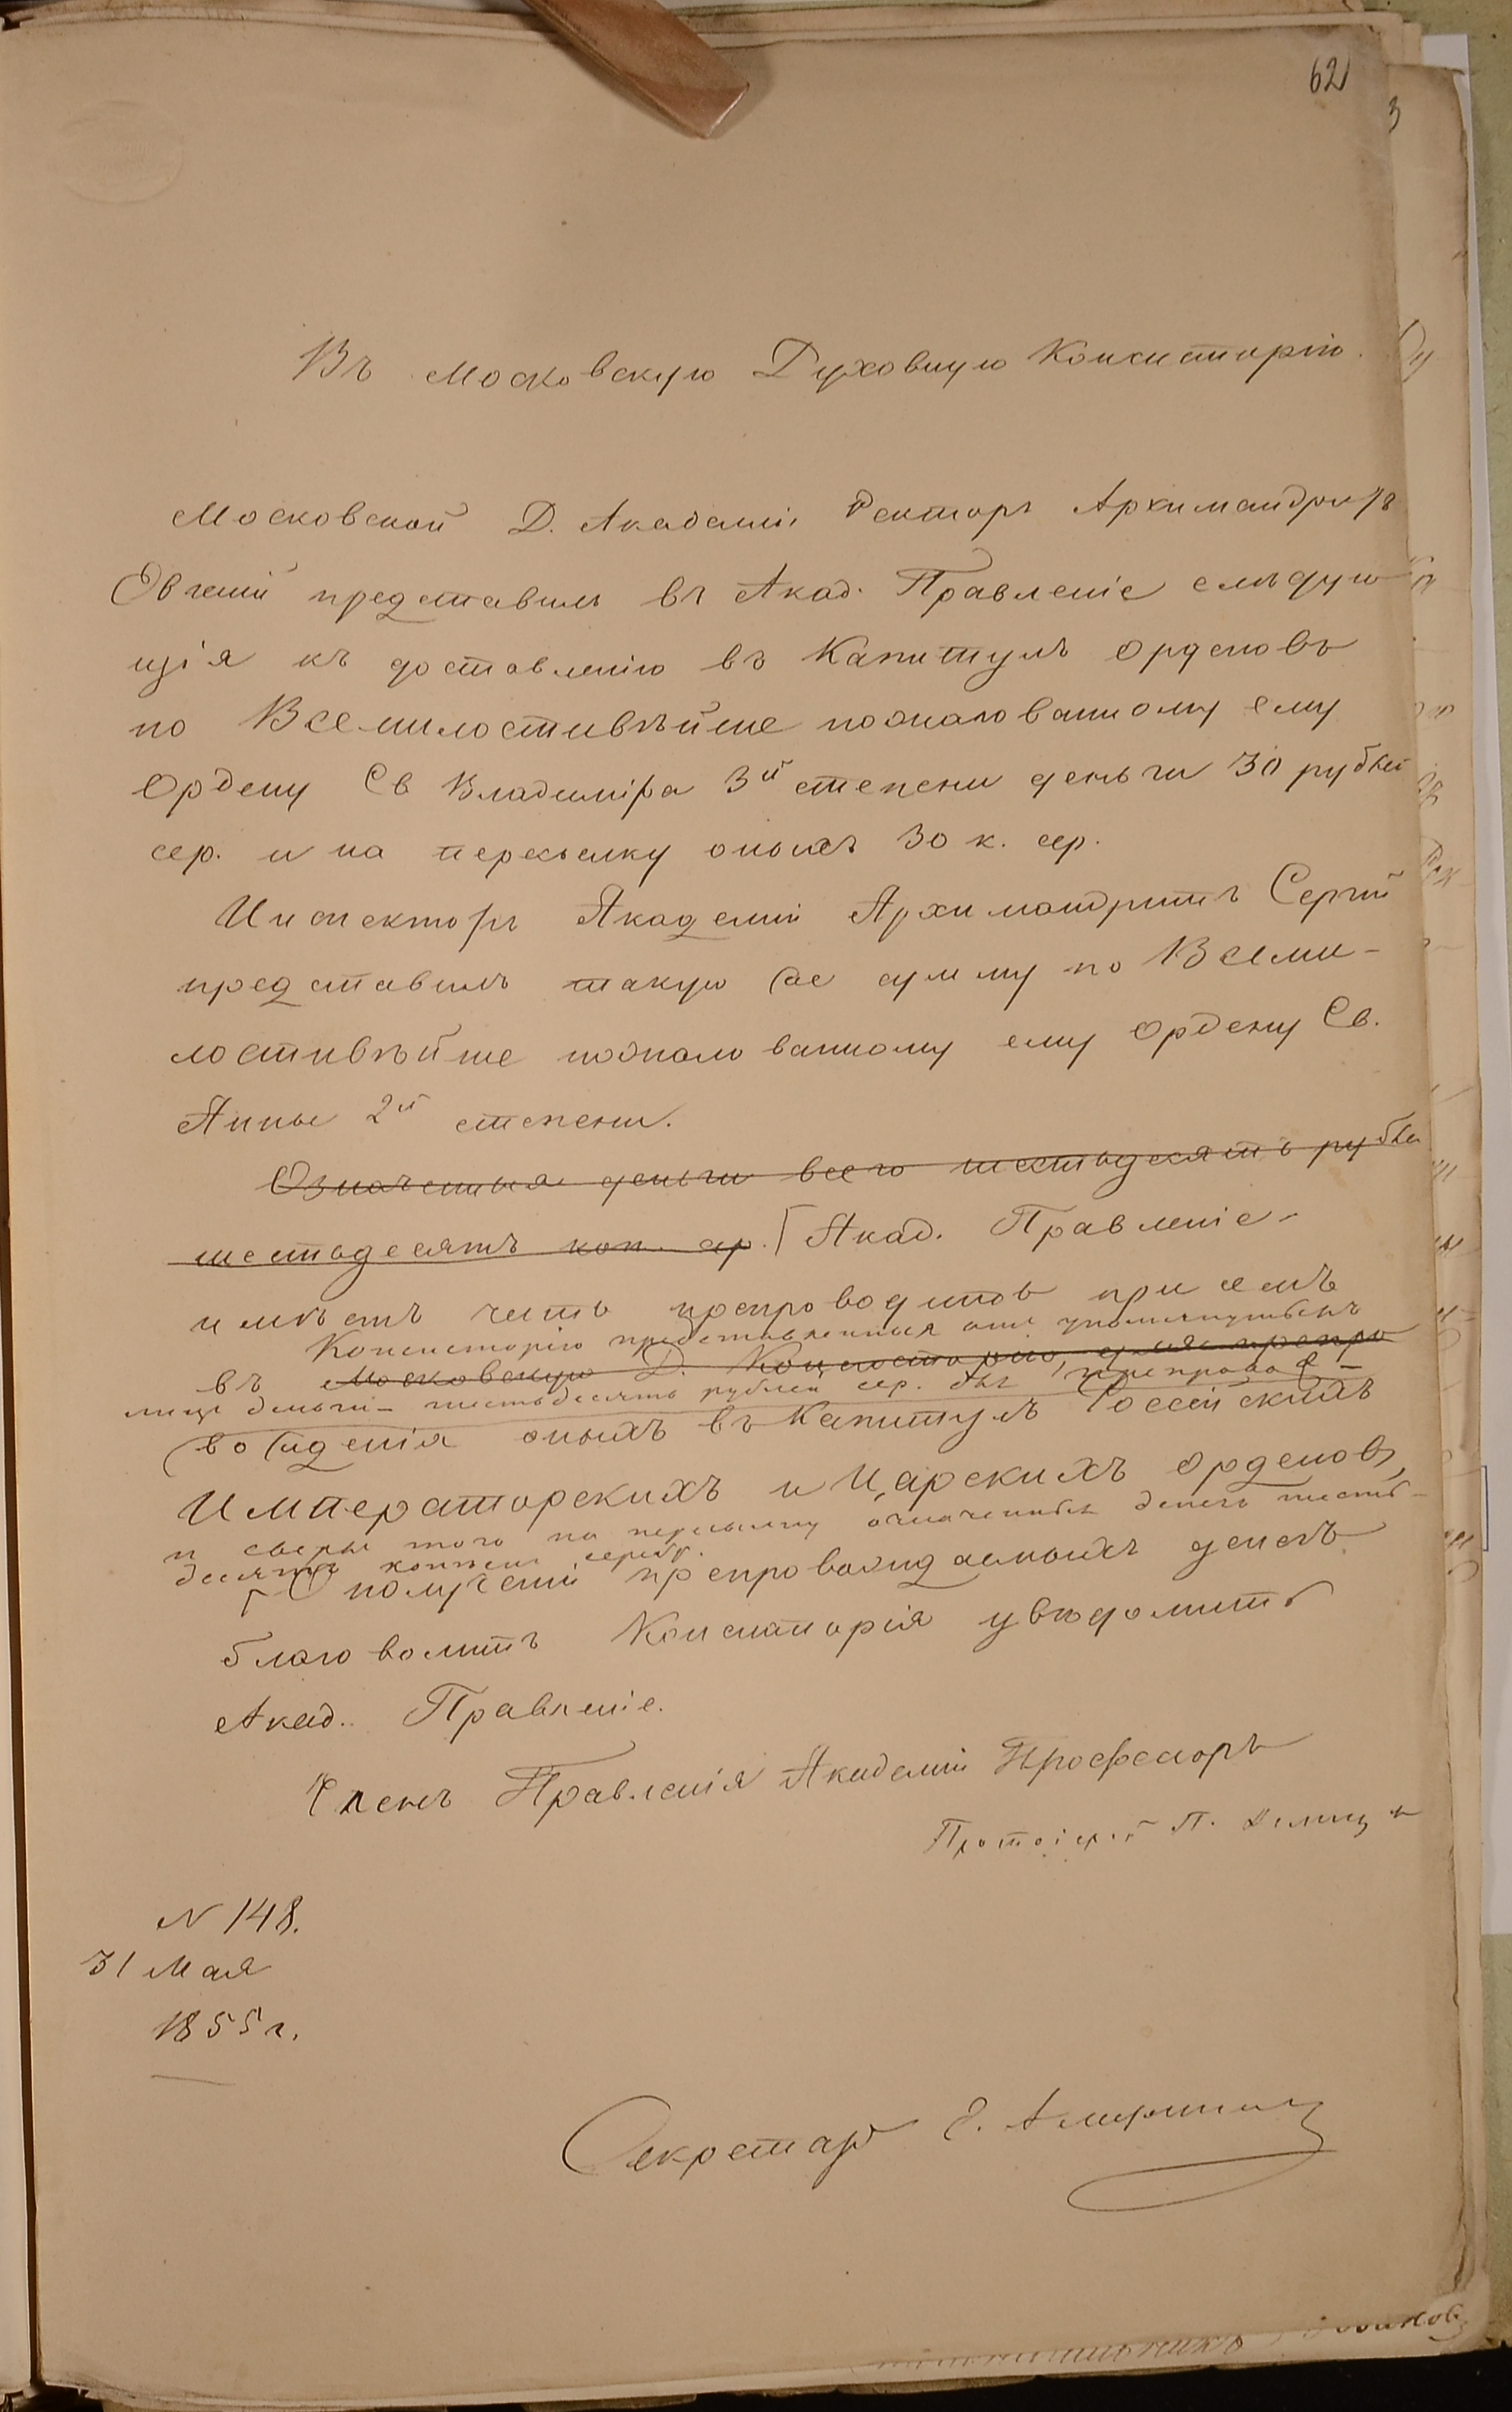 62
Въ Московскую Духовную Консисторію.
Московской Д. Академіи Ректоръ Архимандритъ
Евгеній представилъ въ Акад. Правленіе слѣдую
щія къ доставленію въ Капитулъ Орденовъ
по Всемилостивѣйше пожалованному ему
Ордену Св Владиміра 3й степени деньги 30 рублей
сер. и на пересылку оныхъ 30 к. сер.
Инспекторъ Академіи Архимандритъ Сергій
представилъ такую же сумму по Всеми-
лостивѣйше пожалованному ему Ордену Св.
Анны 2й степени.
Означенныя деньги всего шестьдесятъ рублей
шестьдесятъ коп. сер. Акад. Правленіе
имѣетъ честь препроводить при семъ
Консисторію представленныя упомянутыми
въ Московскую Д. Консисторію, для препро
лицъ деньги - шестьдесятъ рублей сер. для препровож-
вожденія оныхъ въ Капитулъ Россійскихъ
Императорскихъ и Царскихъ Орденовъ,
и сверхъ того на пересылку означенныхъ денегъ шесть-
десятъ копѣекъ серебр.
О полученіи препровождаемыхъ денегъ
благоволитъ Консисторія увѣдомить
Акад. Правленіе.
Членъ Правленія Академіи Профессоръ
Протоіерей П. Делицы
N 148.
31 Мая
1855 г.
Секретарь Е.